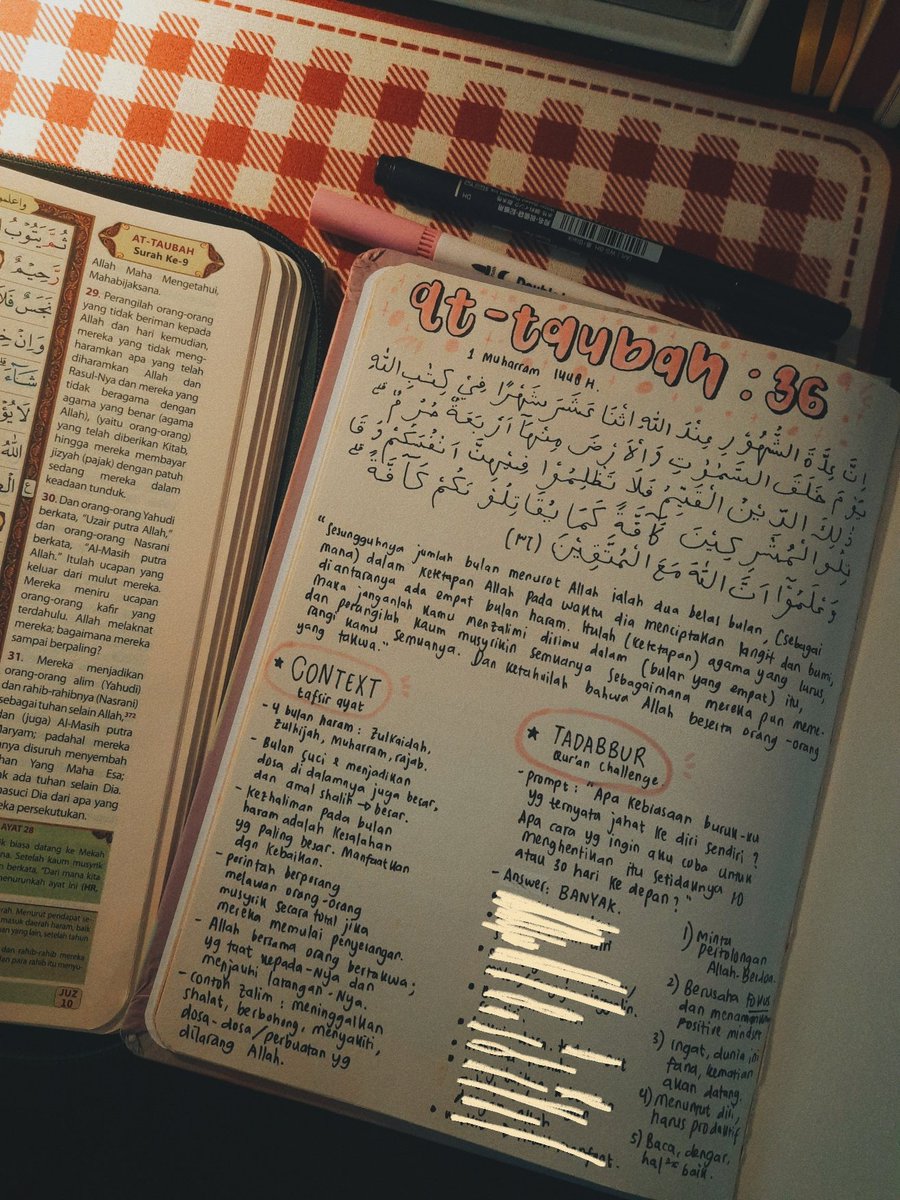 AT-TAUBAH
Surah Ke-9
Allah Maha Mengetahui,
Mahabijaksana.
29. Perangilah orang-orang
yang tidak beriman kepada
Allah dan hari kemudian,
mereka yang tidak meng-
haramkan apa yang telah
diharamkan Allah dan
Rasul-Nya dan mereka yang
tidak beragama dengan
agama yang benar (agama
Allah), (yaitu orang-orang)
yang telah diberikan Kitab,
hingga mereka membayar
jizyah (pajak) dengan patuh
sedang mereka dalam
keadaan tunduk.
30. Dan orang-orang Yahudi
berkata, "Uzair putra Allah,"
dan orang-orang Nasrani
berkata, "Al-Masih putra
Allah." Itulah ucapan yang
keluar dari mulut mereka.
Mereka meniru ucapan
orang-orang kafir yang
terdahulu. Allah melaknat
mereka; bagaimana mereka
sampai berpaling?
31. Mereka menjadikan
orang-orang alim (Yahudi)
dan rahib-rahibnya (Nasrani)
sebagai tuhan selain Allah,³⁷²
dan (juga) Al-Masih putra
Maryam; padahal mereka
disuruh menyembah
Tuhan Yang Maha Esa;
ada tuhan selain Dia.
suci Dia dari apa yang
mereka persekutukan.
AYAT 28
biasa datang ke Mekah
Setelah kaum musyrik
berkata, "Dari mana kita
menurunkah ayat ini (HR.
Menurut pendapat se-
masuk daerah haram, baik
yang lain, setelah tahun
dan rahib-rahib mereka
para rahib itu menyu-
JUZ
10
at-taubah : 36
1 Muharram 1448 H.
اِنَّ عِدَّةَ الشُّهُوْرِ عِنْدَ اللّٰهِ اثْنَا عَشَرَ شَهْرًا فِيْ كِتٰبِ اللّٰهِ
يَوْمَ خَلَقَ السَّمٰوٰتِ وَالْاَرْضَ مِنْهَآ اَرْبَعَةٌ حُرُمٌ ۗ
ذٰلِكَ الدِّيْنُ الْقَيِّمُ فَلَا تَظْلِمُوْا فِيْهِنَّ اَنْفُسَكُمْ وَقَا
تِلُوا الْمُشْرِكِيْنَ كَآفَّةً كَمَا يُقَاتِلُوْنَكُمْ كَآفَّةً ۗ
وَعْلَمُوْٓا اَنَّ اللّٰهَ مَعَ الْمُتَّقِيْنَ (٣٦)
"Sesungguhnya jumlah bulan menurut Allah ialah dua belas bulan, (sebagai
mana) dalam ketetapan Allah pada waktu dia menciptakan langit dan bumi,
diantaranya ada empat bulan haram. Itulah (ketetapan) agama yang lurus,
maka janganlah kamu menzalimi dirimu dalam (bulan yang empat) itu,
dan perangilah kaum musyrikin semuanya sebagaimana mereka pun meme-
rangi kamu semuanya. Dan ketahuilah bahwa Allah beserta orang-orang
yang takwa."
CONTEXT
tafsir ayat
- 4 bulan haram: Zulkaidah,
zulhijah, muharram, rajab.
- Bulan suci & menjadikan
dosa di dalamnya juga besar,
dan amal shalih → besar.
- Kezhaliman pada bulan
haram adalah kesalahan
yg paling besar. Manfaatkan
dgn kebaikan.
- perintah berperang
melawan orang-orang
musyrik secara total jika
mereka memulai penyerangan.
- Allah bersama orang bertakwa;
yg taat kepada-Nya dan
menjauhi larangan-Nya.
- contoh zalim: meninggalkan
shalat, berbohong, menyakiti,
dosa-dosa/perbuatan yg
dilarang Allah.
TADABBUR
Qur'an Challenge
- Prompt: "Apa kebiasaan buruk-ku
yg ternyata jahat ke diri sendiri?
Apa cara yg ingin aku coba untuk
menghentikan itu setidaknya 10
atau 30 hari ke depan?"
- Answer: BANYAK.
1) Minta
pertolongan
Allah. Berdoa.
2) Berusaha fokus
dan menanamkan
positive mindset
3) Ingat, dunia ini
fana, kematian
akan datang.
4) Menuntut diri,
harus produktif
5) Baca, dengar,
hal²x baik.